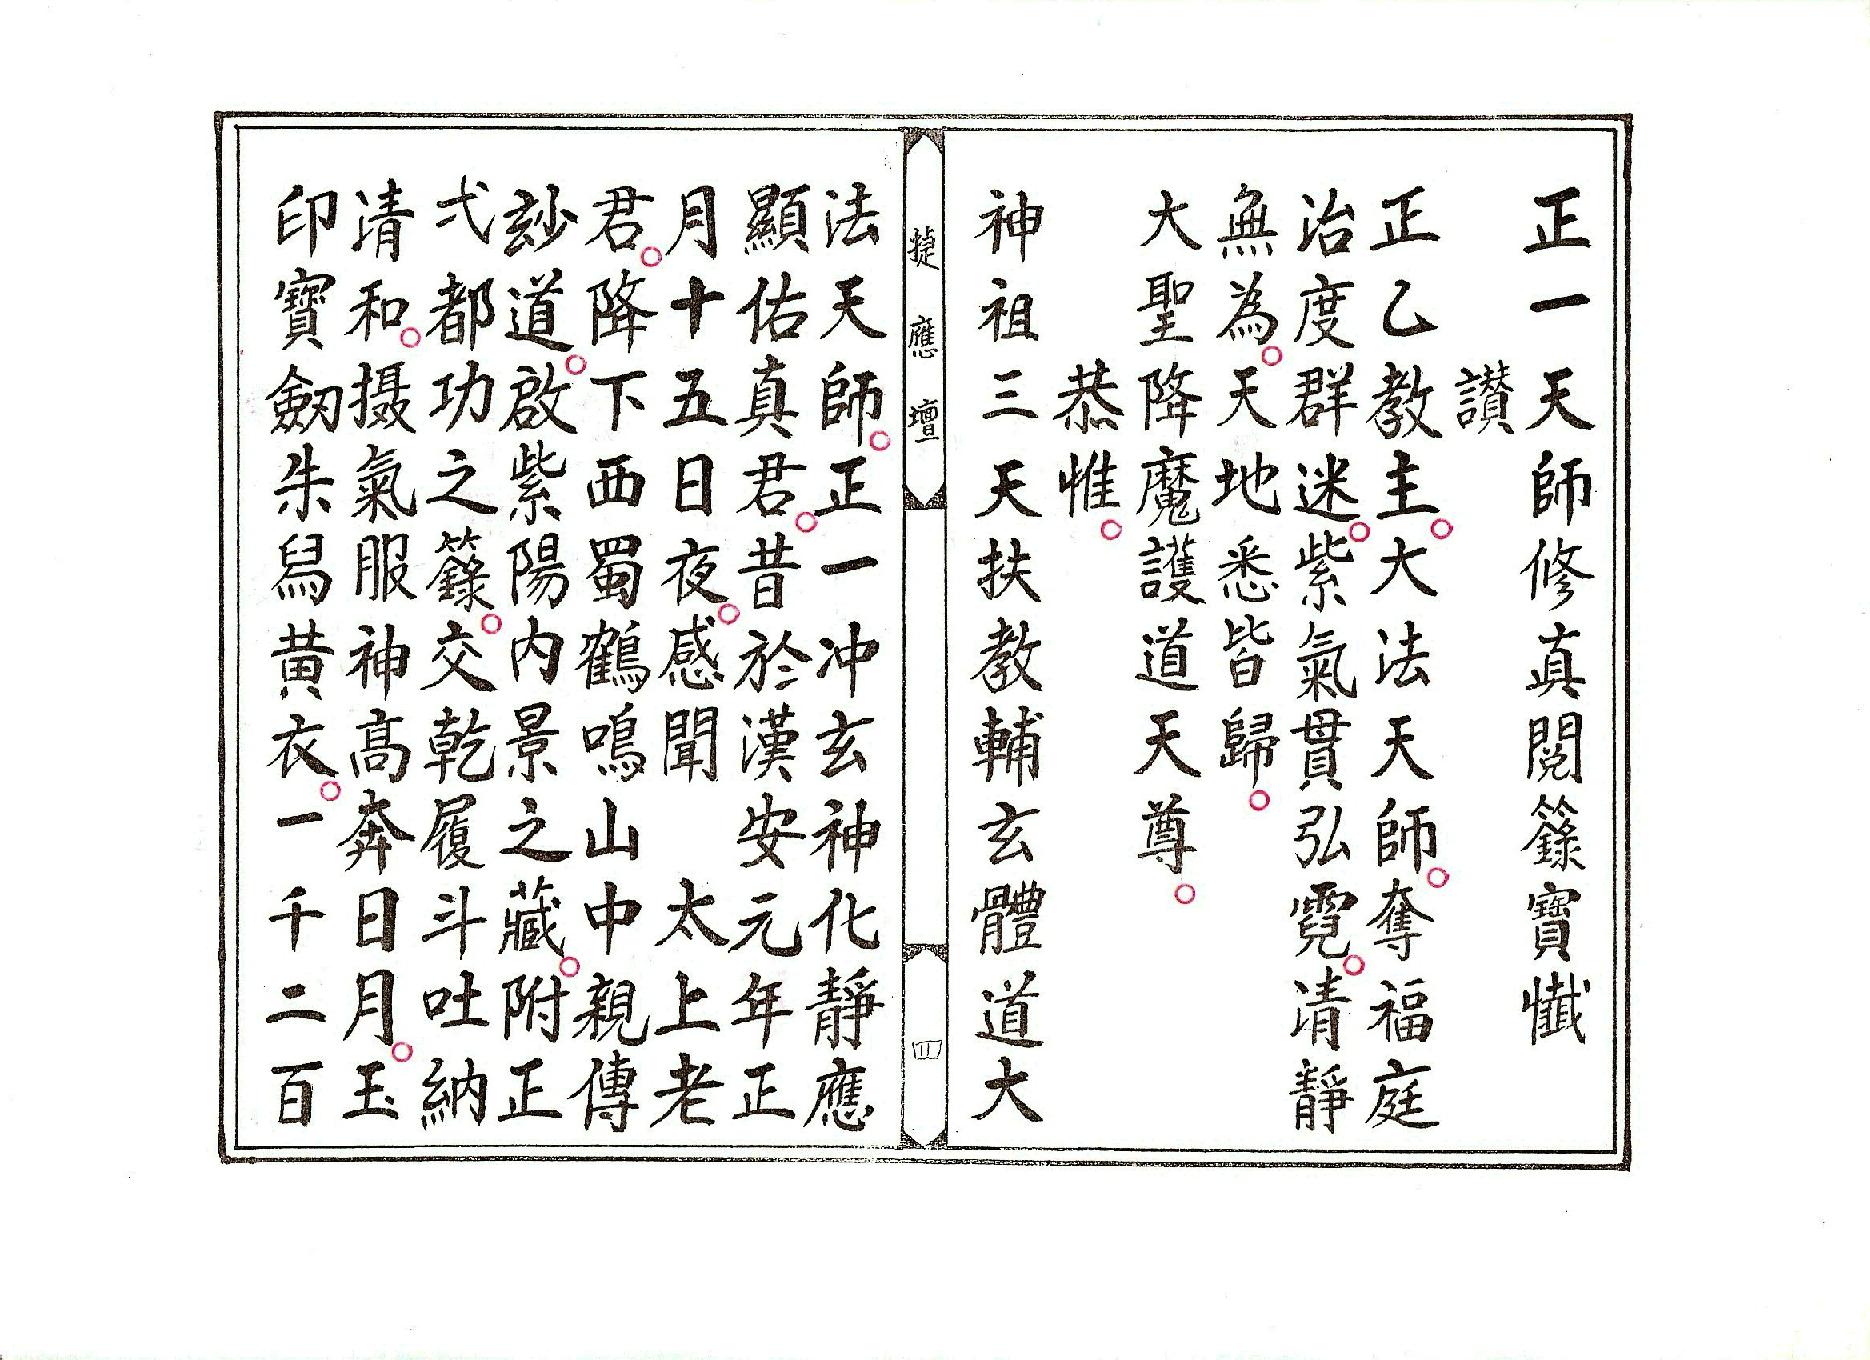 正一天師修真閱籙寶懺
讃
正乙教主。大法天師。奪福庭
治度群迷。紫氣貫弘霓。清靜
無為。天地悉皆歸。
大聖降魔護道天尊。
恭惟。
神祖三天扶教輔玄體道大
捷應壇
四
法天師。正一冲玄神化靜應
顯佑真君。昔於漢安元年正
月十五日夜。感聞 太上老
君。降下西蜀鶴鳴山中親傳
玅道。啟紫陽內景之藏。附正
弌都功之籙。交乾履斗吐納
清和。摄氣服神高奔日月。玉
印寶劔朱舄黃衣。一千二百